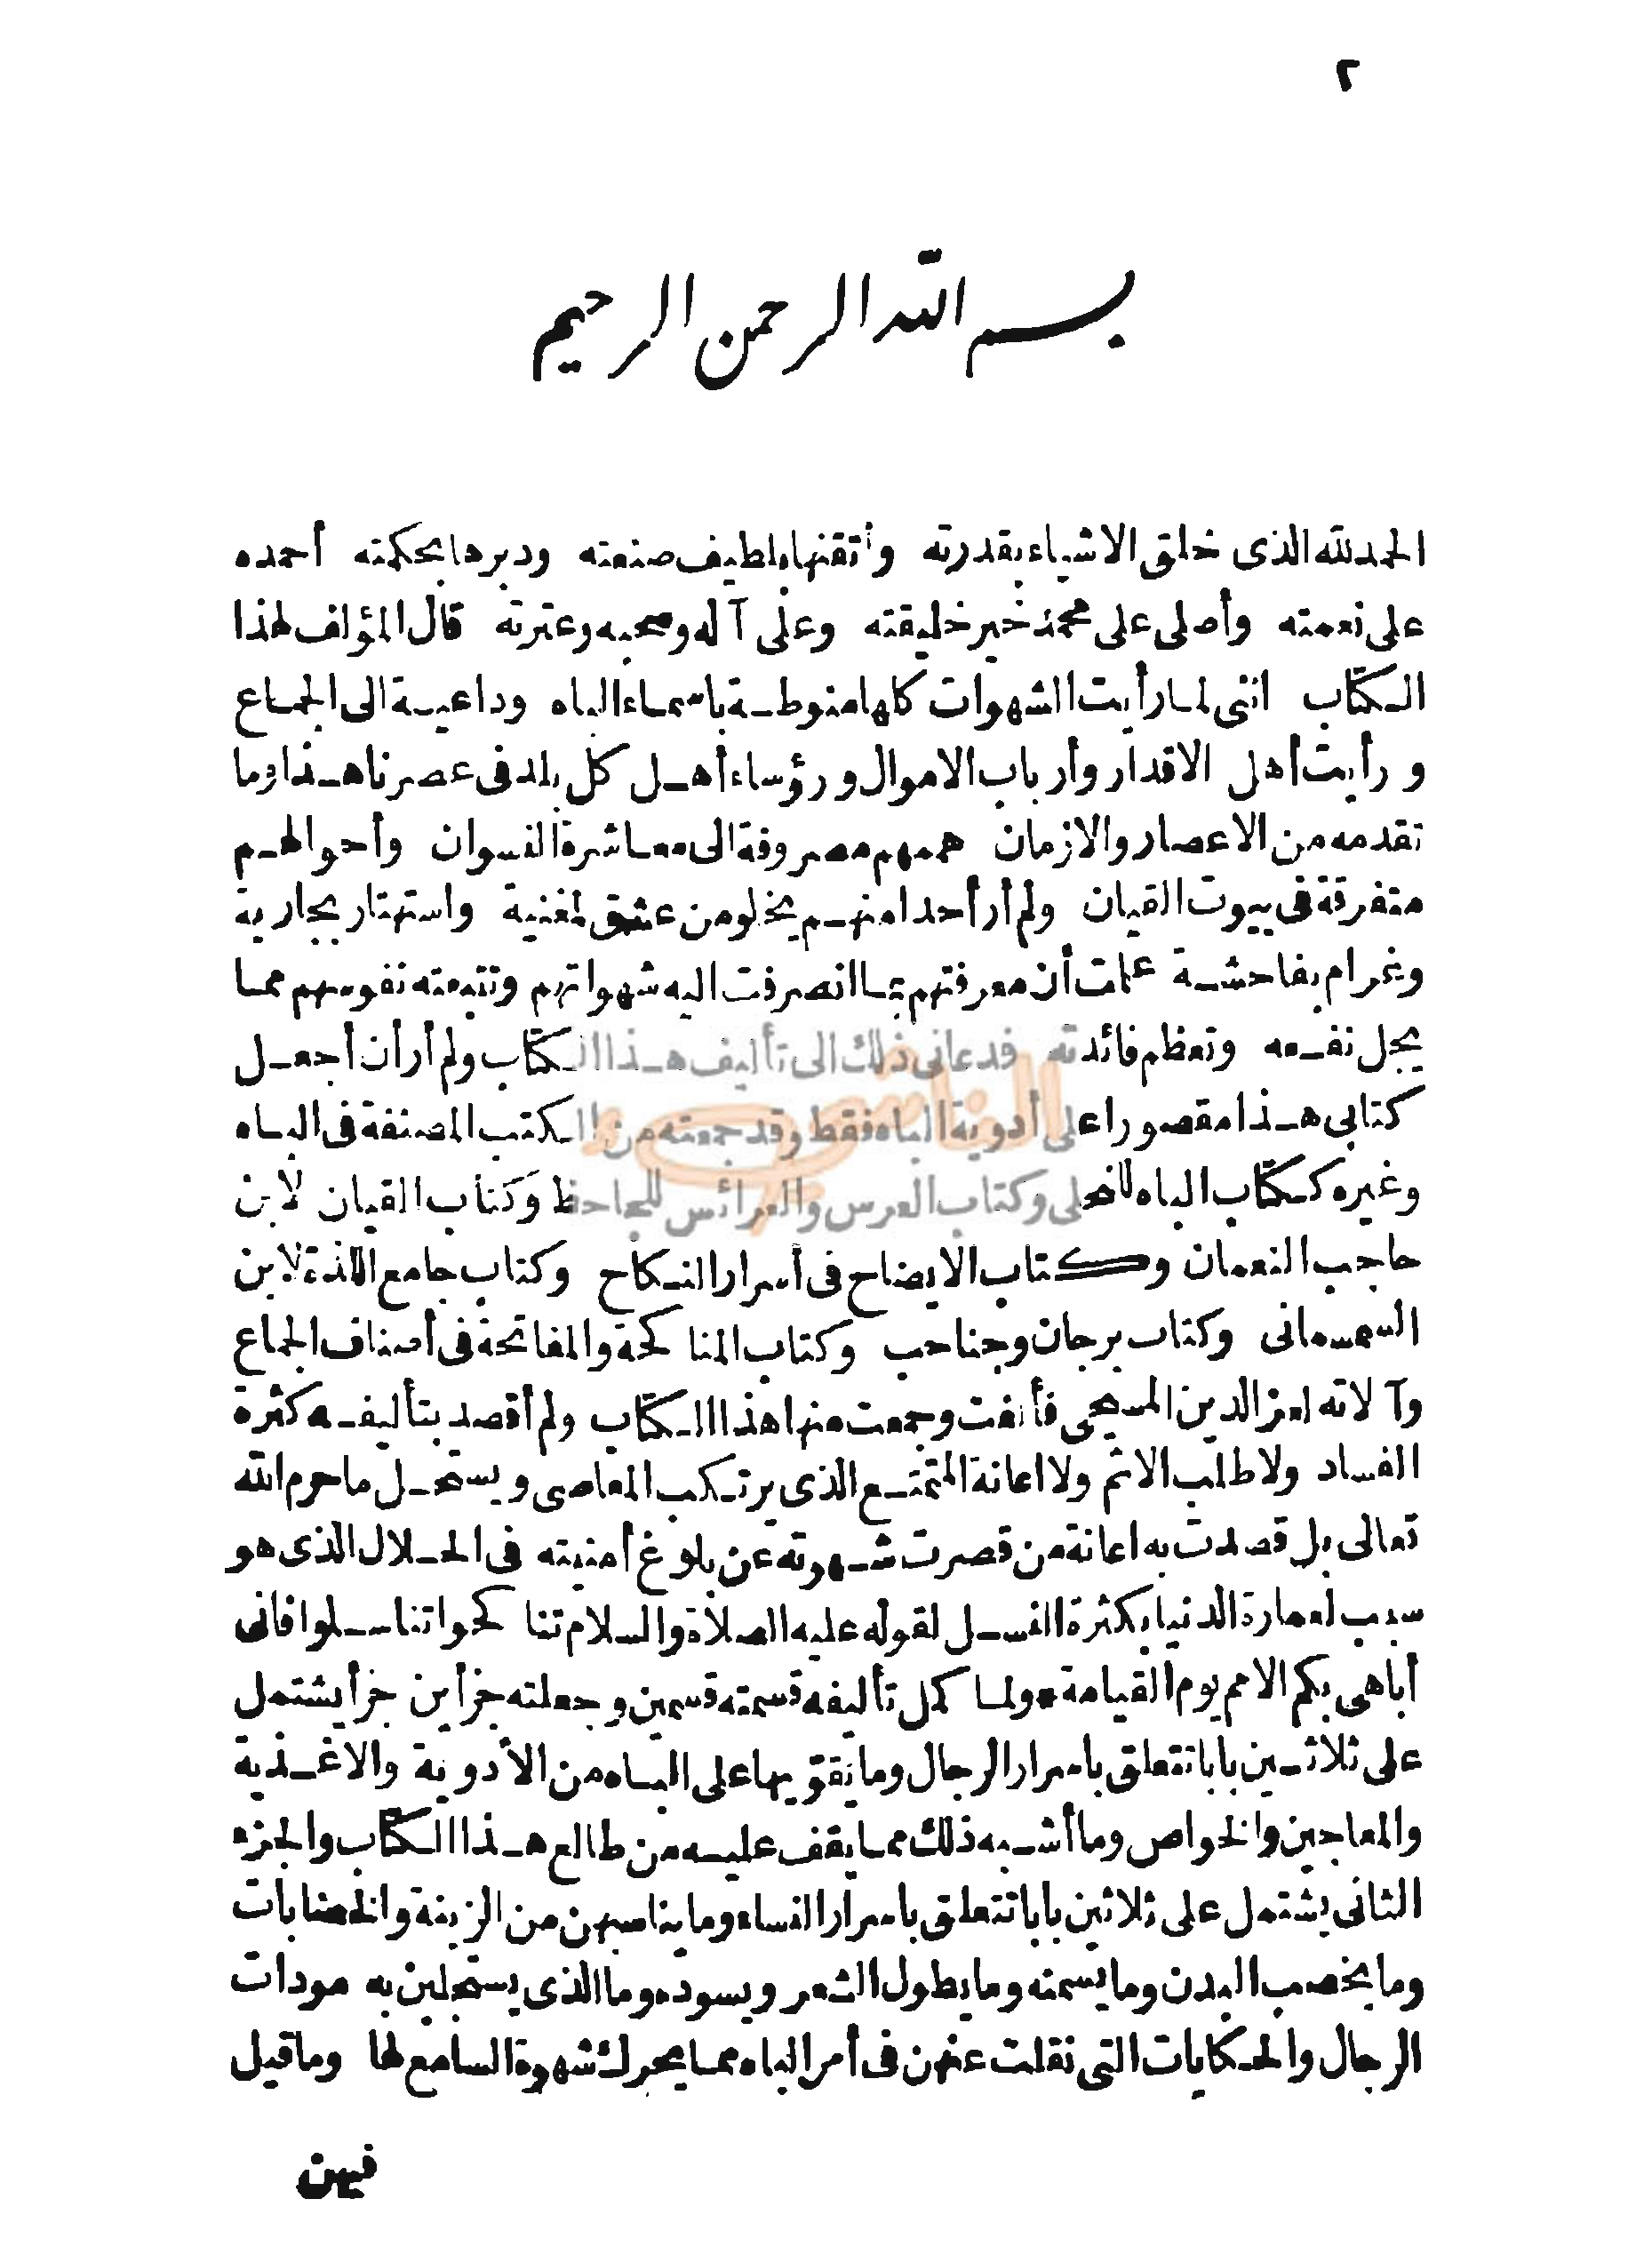 ٢
بسم الله الرحمن الرحيم
الحمد لله الذى خلق الاشياء بقدرته وأتقنها بلطيف صنعته ودبرها بحكمته أحمده
على نعمته وأصلى على محمد خير خليقته وعلى آله وصحبه وعترته قال المؤلف لهذا
الكتاب اننى لما رأيت الشهوات كلها منوطة باسماء الباه وداعية الى الجماع
ورأيت أهل الاقدار وأرباب الاموال ورؤساء أهل كل بلد فى عصرنا هذا وما
تقدمه من الاعصار والازمان هممهم مصروفة الى معاشرة النسوان وأحوالهم
متفرقة فى بيوت القيان ولم أر أحدا منهم يخلو من عشق لمغنية واستهتار بجارية
وغرام بفاحشة علمت أن معرفتهم بما انصرفت اليه شهواتهم وتتبعته نفوسهم مما
يجل نفعه وتعظم فائدته فدعانى ذلك الى تأليف هذا الكتاب ولم أر أن أجعل
كتابى هذا مقصورا على أدوية الباه فقط وقد جمعته من الكتب المصنفة فى الباه
وغيره ككتاب الباه للنحلى وكتاب العرس والعرائس للجاحظ وكتاب القيان لابن
حاجب النعمان وكتاب الايضاح فى أسرار النكاح وكتاب جامع اللذة لابن
السمسمانى وكتاب برجان وجناحب وكتاب المناكحة والمفاتحة فى أصناف الجماع
وآلاته لعز الدين المسيحى فألفت وجمعت منها هذا الكتاب ولم أقصد بتأليفه كثرة
الفساد ولا طلب الاثم ولا اعانة المتمتع الذى يرتكب المعاصى ويستحل ما حرم الله
تعالى بل قصدت به اعانة من قصرت شهوته عن بلوغ أمنيته فى الحلال الذى هو
سبب لعمارة الدنيا بكثرة النسل لقوله عليه الصلاة والسلام تناكحوا تناسلوا فانى
أباهى بكم الامم يوم القيامة * ولما كمل تأليفه قسمته قسمين وجعلته جزأين جزأ يشتمل
على ثلاثين بابا تتعلق باسرار الرجال وما يقويها على الباه من الأدوية والاغذية
والمعاجين والخواص وما أشبه ذلك مما يقف عليه من طالع هذا الكتاب والجزء
الثانى يشتمل على ثلاثين بابا تتعلق باسرار النساء وما يناسبهن من الزينة والخضابات
وما يخصب البدن وما يسمنه وما يطول الشعر ويسوده وما الذى يستجلبن به مودات
الرجال والحكايات التى نقلت عنهن فى أمر الباه مما يحرك شهوة السامع لها وما قيل
فيهن